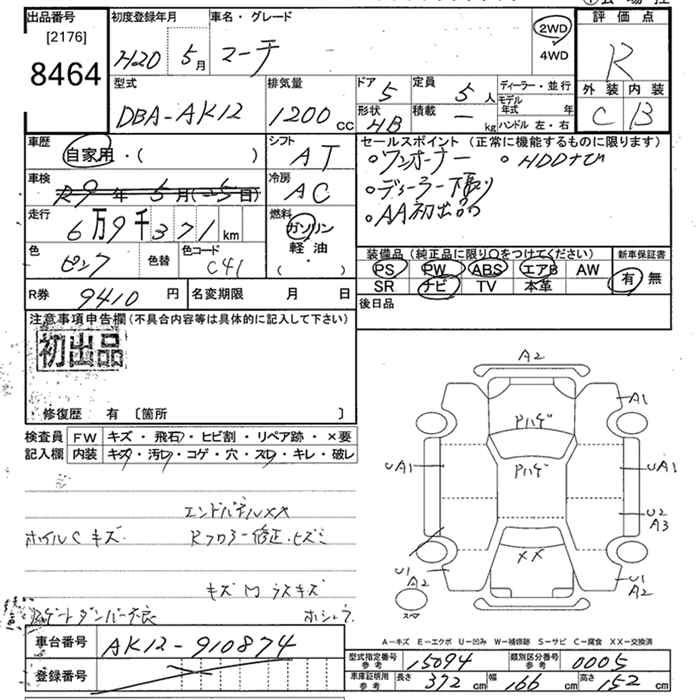 出品番号
[2176]
8464
初度登録年月
H20 5月
車名・グレード
マーチ
2WD
4WD
評価点
R
外装 内装
C B
型式
DBA-AK12
排気量
1200 CC
ドア
5
定員
5人
形状
HB
積載
— kg
ディーラー・並行
モデル年式 年
ハンドル 左・右
車歴
自家用・( )
シフト
AT
車検
R9年5月(-5日)
冷房
AC
走行
6万9千371km
燃料
ガソリン
軽油
( ・ )
色
ピンク
色替
色コード
C41
R券 9410円
名変期限 月 日
セールスポイント (正常に機能するものに限ります)
ワンオーナー HDDナビ
ディーラー下取り
AA初出品
装備品(純正品に限り○をつけてください)
PS PW ABS エアB AW
SR ナビ TV 本革
新車保証書
有 無
後日品
注意事項申告欄(不具合内容等は具体的に記入して下さい)
初出品
修復歴 有 〔箇所 〕
検査員記入欄
FW キズ・飛石・ヒビ割・リペア跡・×要
内装 キズ・汚レ・コゲ・穴・スレ・キレ・破レ
エンドパネルXX
ホイルCキズ Rフロアー修正・ヒズミ
キズM ラスキズ
Rゲートダンパー不良
A2
A1
Pハゲ
UA1
Pハゲ
UA1
U2
A3
XX
U1
A2
U1
A2
スペア
A-キズ E-エクボ U-凹み W-補修跡 S-サビ C-腐食 XX-交換済
車台番号 AK12-910874
登録番号
型式指定番号 参考 15094
類別区分番号 参考 0005
車庫証明用 参考 長さ 372cm 幅 166cm 高さ 152cm